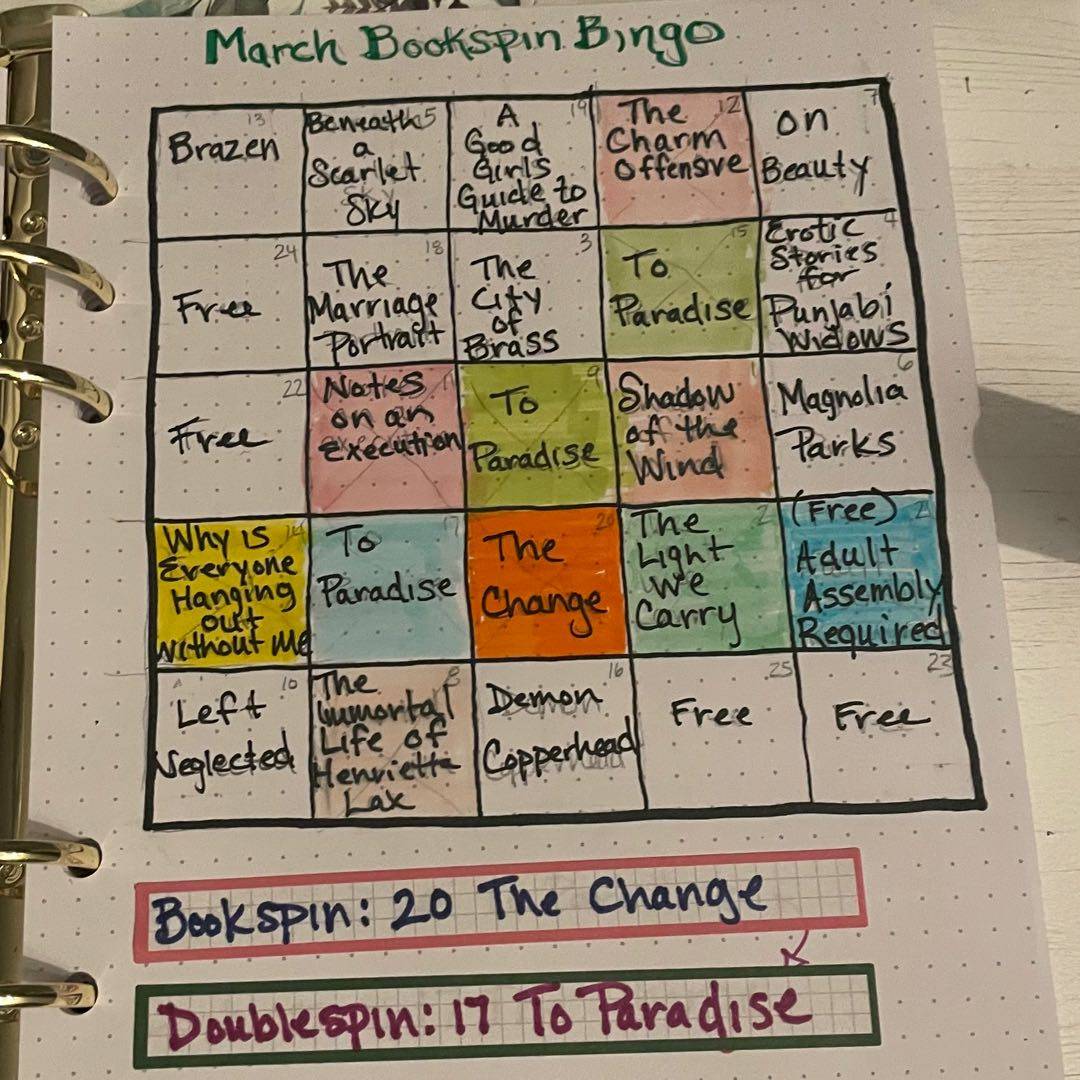 March Bookspin Bingo
13
Brazen
5
Beneath
a
Scarlet
Sky
19
A
Good
Girls
Guide to
Murder
12
The
Charm
Offensive
7
On
Beauty
24
Free
18
The
Marriage
Portrait
3
The
City
of
Brass
15
To
Paradise
4
Erotic
Stories
for
Punjabi
Widows
22
Free
11
Notes
on an
Execution
9
To
Paradise
1
Shadow
of the
Wind
6
Magnolia
Parks
14
Why is
Everyone
Hanging
out
without me
17
To
Paradise
20
The
Change
2
The
Light
We
Carry
21
(Free)
Adult
Assembly
Required
10
Left
Neglected
8
The
Immortal
Life of
Henrietta
Lax
16
Demon
Copperhead
25
Free
23
Free
Bookspin: 20 The Change
Doublespin: 17 To Paradise